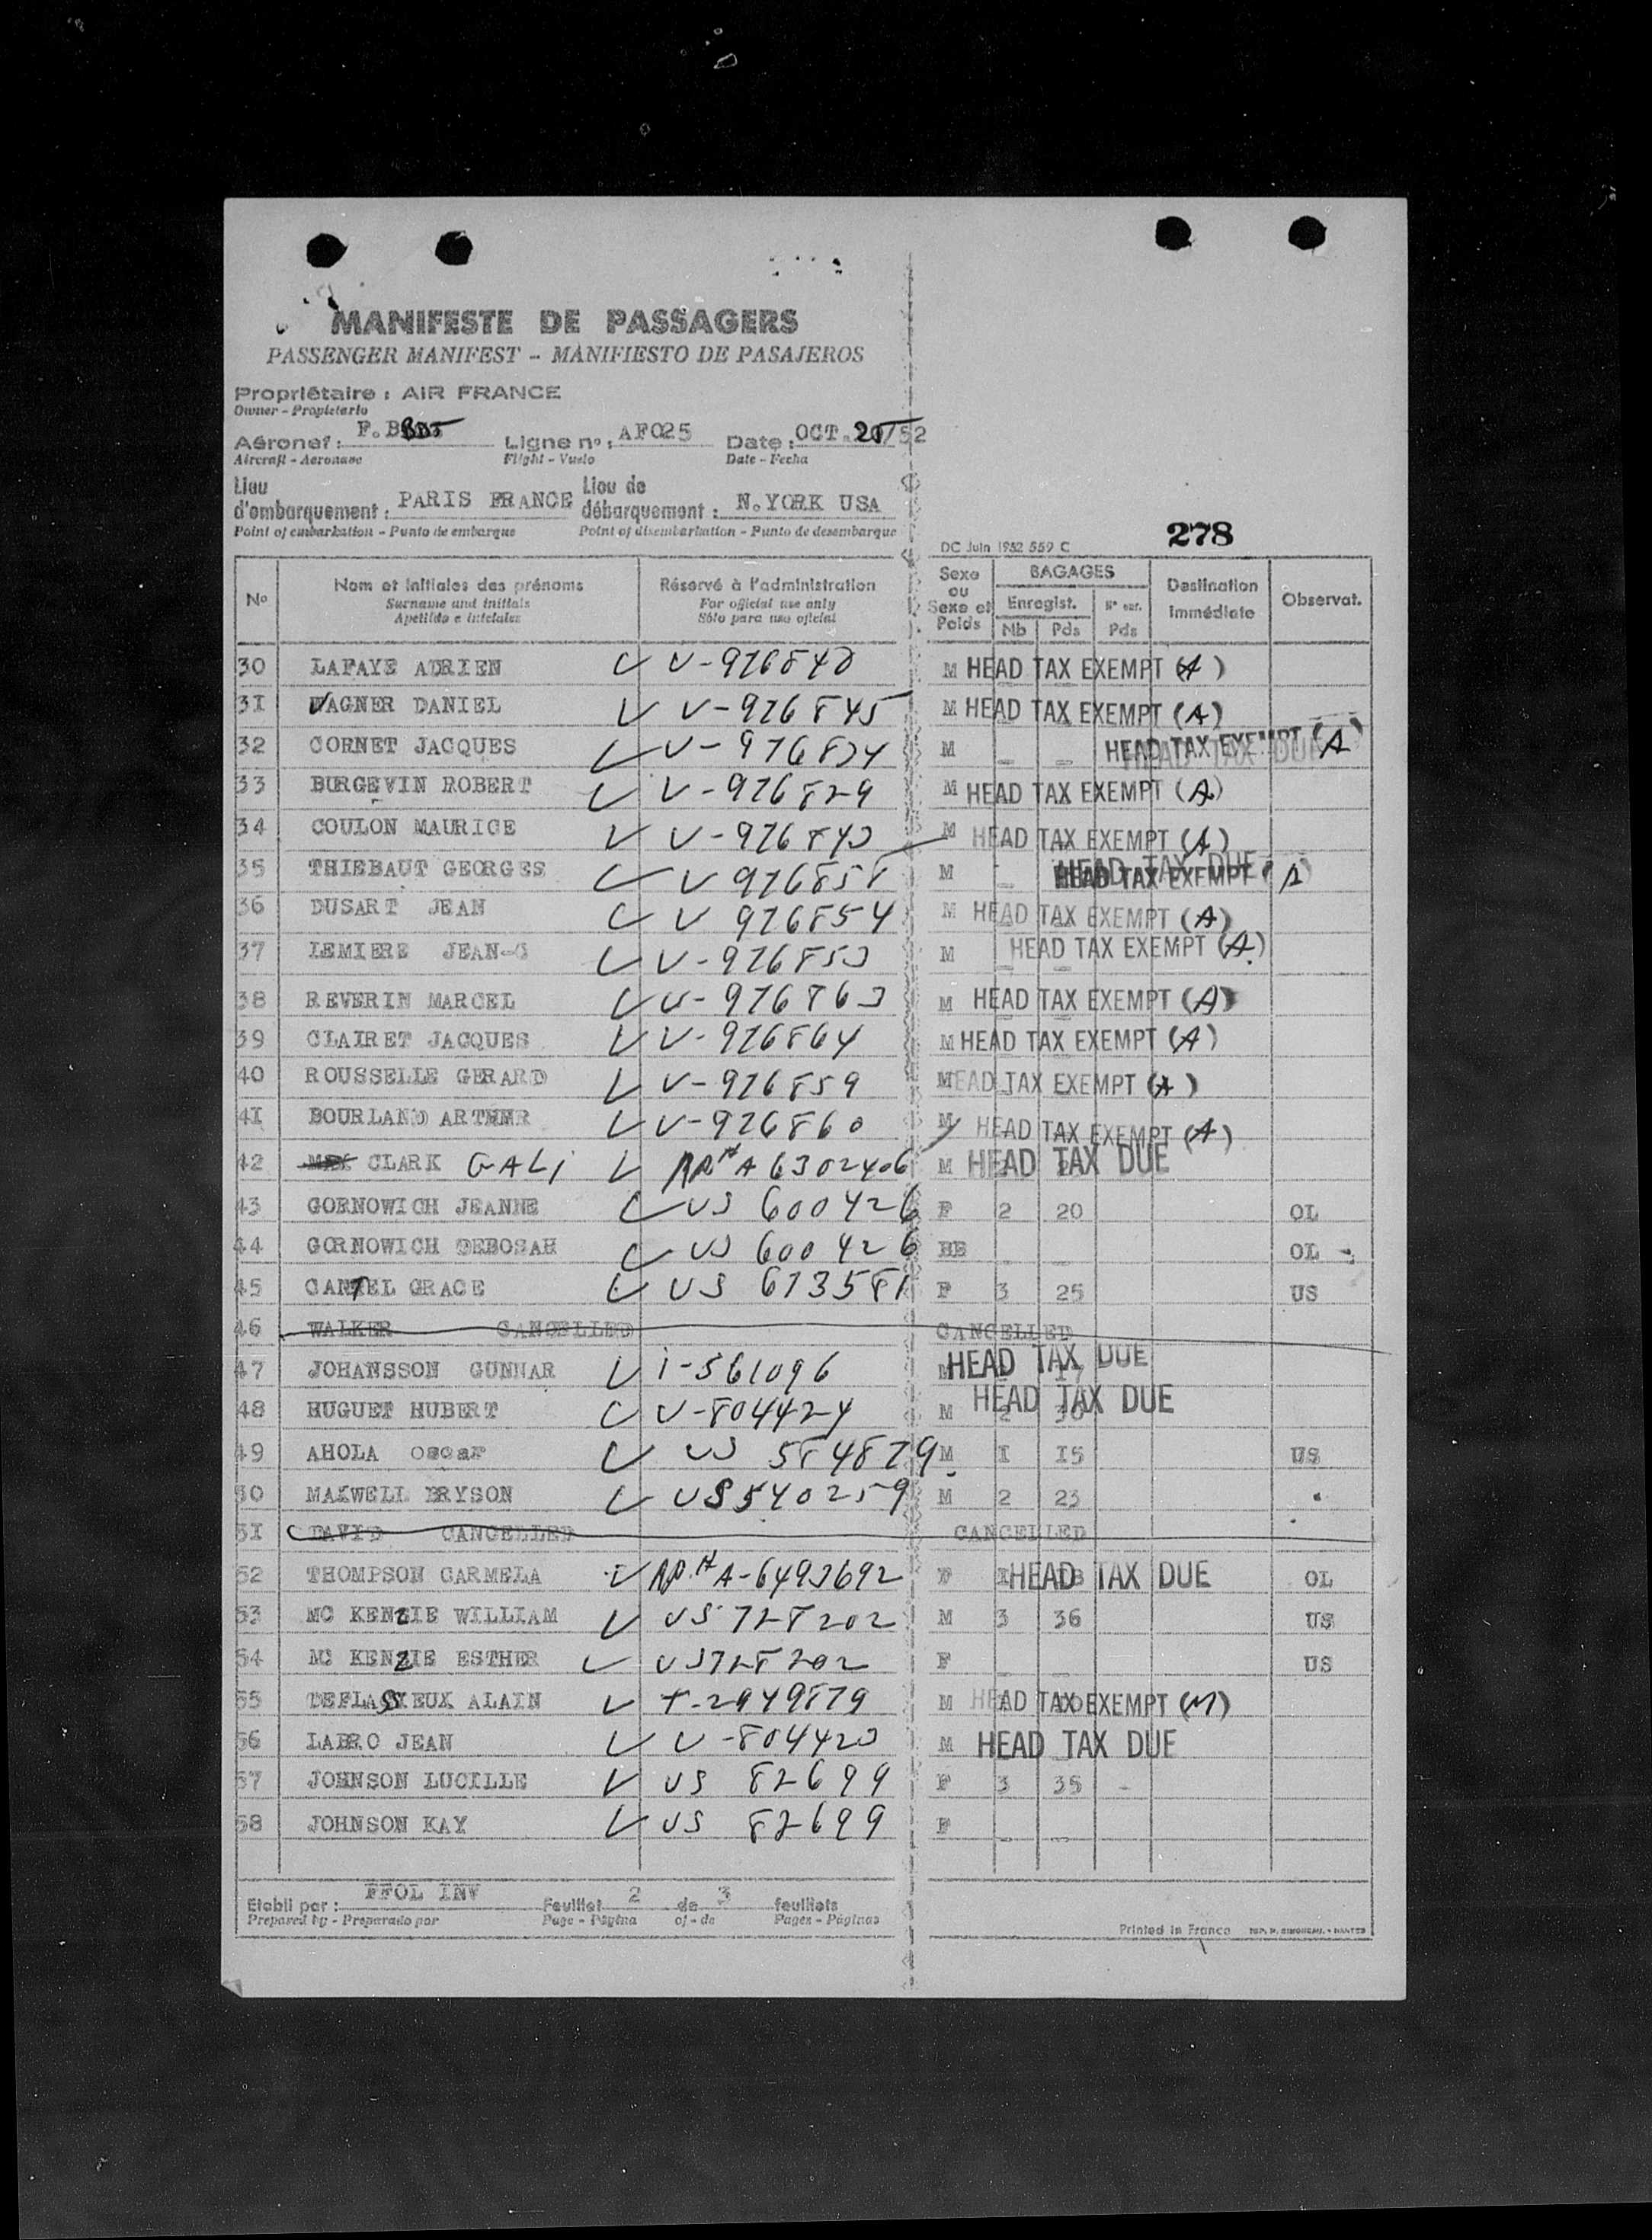 MANIFESTE DE PASSAGERS
PASSENGER MANIFEST – MANIFIESTO DE PASAJEROS
Propriétaire : AIR FRANCE
Owner – Propietario
Aéronef : F.B Ligne nº : AF025 Date : OCT. 25/52
Aircraft – Aeronave Flight – Vuelo Date – Fecha
Lieu d'embarquement : PARIS FRANCE Lieu de débarquement : N.YORK USA
Point of embarkation – Punto de embarque Point of disembarkation – Punto de desembarque
278
DC Juin 1952 559 C
Nº Nom et initiales des prénoms Réservé à l'administration Sexe ou Sexe et Poids BAGAGES Destination immédiate Observat.
Surname and initials For official use only Enregist. Nº enr.
Apellido e iniciales Sólo para uso oficial Nb Pds Pds
30 LAFAYE ADRIEN V-926840 M HEAD TAX EXEMPT (A)
31 WAGNER DANIEL V-926845 M HEAD TAX EXEMPT (A)
32 CORNET JACQUES V-926834 M _ _ HEAD TAX EXEMPT (A)
33 BURGEVIN ROBERT V-926829 M HEAD TAX EXEMPT (A)
34 COULON MAURICE V-926843 M HEAD TAX EXEMPT (A)
35 THIEBAUT GEORGES V 926858 M _ HEAD TAX DUE HEAD TAX EXEMPT (A)
36 DUSART JEAN V 926854 M HEAD TAX EXEMPT (A)
37 LEMIERE JEAN-G V-926853 M HEAD TAX EXEMPT (A)
38 REVERIN MARCEL V-926863 M HEAD TAX EXEMPT (A)
39 CLAIRET JACQUES V-926864 M HEAD TAX EXEMPT (A)
40 ROUSSELLE GERARD V-926859 M EAD TAX EXEMPT (A)
41 BOURLAND ARTHUR V-926860 M HEAD TAX EXEMPT (A)
42 CLARK GALI A6302406 M HEAD TAX DUE
43 GORNOWICH JEANNE US 600426 F 2 20 OL
44 GORNOWICH DEBOSAH US 600426 BE OL
45 CANTEL GRACE US 673581 F 3 25 US
46 WALKER CANCELLED CANCELLED
47 JOHANSSON GUNNAR i-561096 M HEAD TAX DUE
48 HUGUET HUBERT V-804424 M 2 30 HEAD TAX DUE
49 AHOLA Oscar US 584879 M 1 15 US
50 MAXWELL BRYSON US 540259 M 2 23
51 DAVID CANCELLED CANCELLED
52 THOMPSON CARMELA A-6493692 F HEAD TAX DUE OL
53 MC KENZIE WILLIAM US 728202 M 3 36 US
54 MC KENZIE ESTHER US 728202 F _ _ US
55 DEFLASSIEUX ALAIN T-2949879 M HEAD TAX EXEMPT (M)
56 LABRO JEAN V-804423 M HEAD TAX DUE
57 JOHNSON LUCILLE US 82699 F 3 35 -
58 JOHNSON KAY US 82699 F _ _
Etabli par : FFOL INV Feuillet 2 de 3 feuillets
Prepared by – Preparado por Page – Página of – de Pages – Páginas
Printed in France